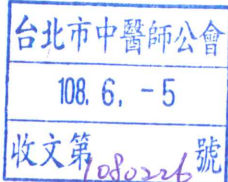 台北市中醫師公會
108. 6. -5
收文第1080226號